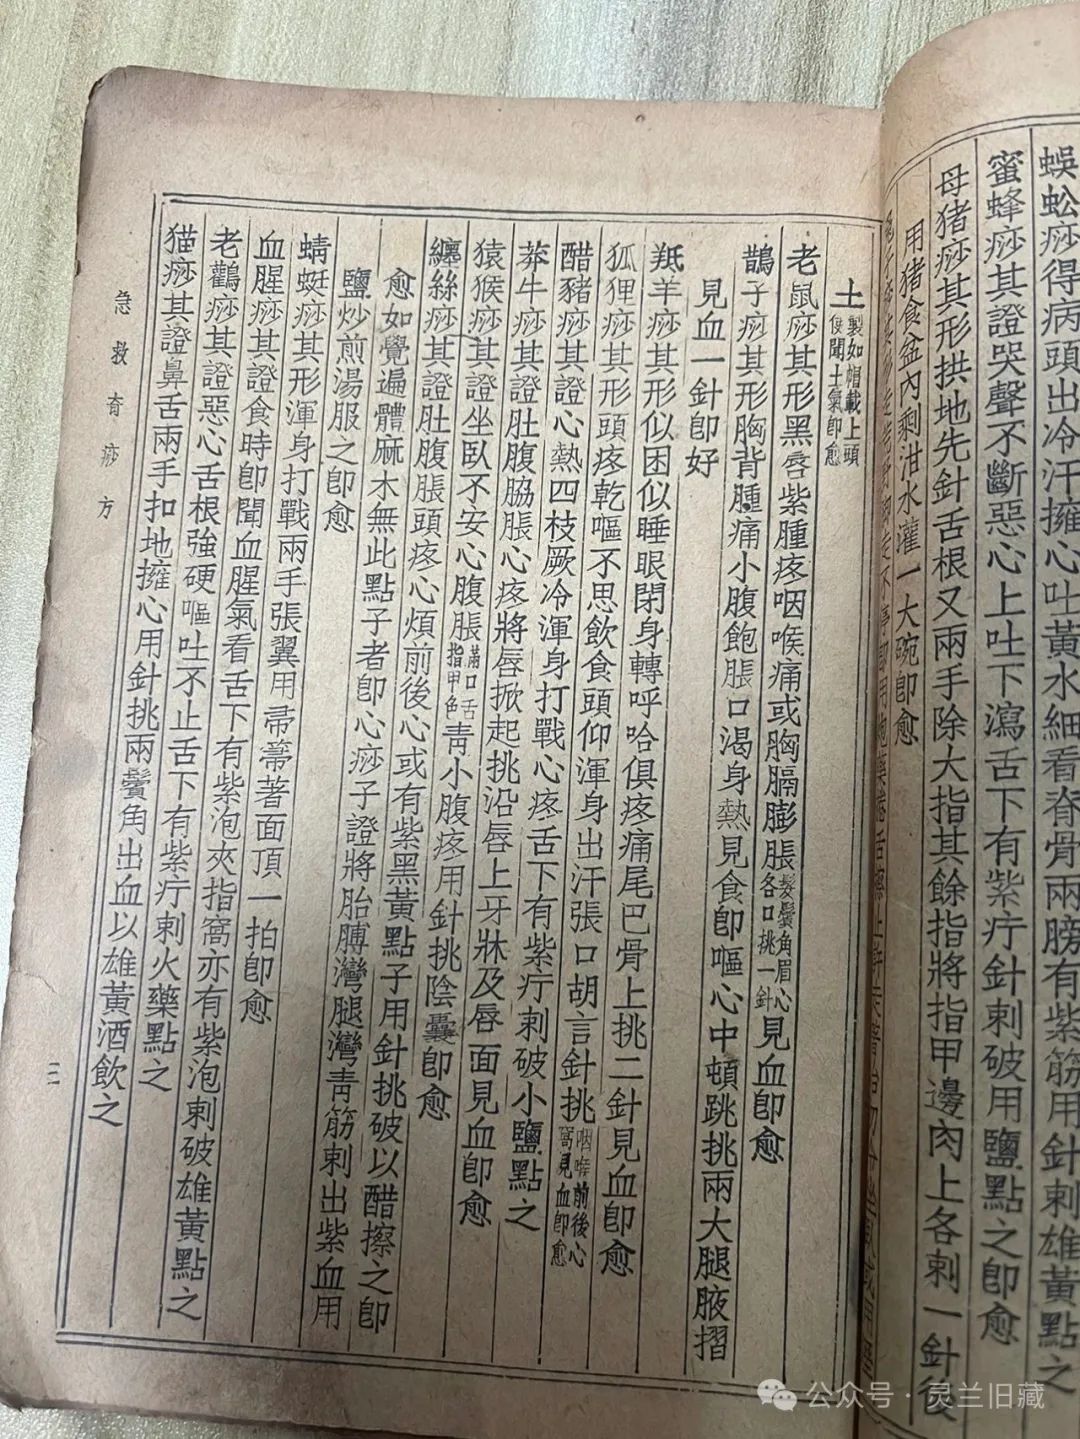 蜈蚣痧得病頭出冷汗擁心吐黃水細看脊骨兩膀有紫筋用針刺雄黃點之
蜜蜂痧其證哭聲不斷惡心上吐下瀉舌下有紫疔針刺破用鹽點之卽愈
母猪痧其形拱地先針舌根又兩手除大指其餘指將指甲邊肉上各刺一針後
用猪食盆內剩泔水灌一大碗卽愈
土製如帽載上頭
俟聞土氣卽愈
老鼠痧其形黑唇紫腫疼咽喉痛或胸膈膨脹髮鬢角眉心各口挑一針見血卽愈
鵲子痧其形胸背腫痛小腹飽脹口渴身熱見食卽嘔心中頓跳挑兩大腿腋摺
見血一針卽好
羝羊痧其形似困似睡眼閉身轉呼哈俱疼痛尾巴骨上挑二針見血卽愈
狐狸痧其形頭疼乾嘔不思飲食頭仰渾身出汗張口胡言針挑咽喉前後心窩見血卽愈
醋豬痧其證心熱四枝厥冷渾身打戰心疼舌下有紫疔刺破小鹽點之
莽牛痧其證肚腹脇脹心疼將唇掀起挑沿唇上牙牀及唇面見血卽愈
猿猴痧其證坐臥不安心腹脹滿口舌指甲色靑小腹疼用針挑陰囊卽愈
纏絲痧其證肚腹脹頭疼心煩前後心或有紫黑黃點子用針挑破以醋擦之卽
愈如覺遍體麻木無此點子者卽心痧子證將胎膊灣腿灣靑筋刺出紫血用
鹽炒煎湯服之卽愈
蜻蜓痧其形渾身打戰兩手張翼用帚箒著面頂一拍卽愈
血腥痧其證食時卽聞血腥氣看舌下有紫泡夾指窩亦有紫泡刺破雄黃點之
老鸛痧其證惡心舌根強硬嘔吐不止舌下有紫疔刺火藥點之
猫痧其證鼻舌兩手扣地擁心用針挑兩鬢角出血以雄黃酒飲之
急救奇痧方
三
公众号·灵兰旧藏